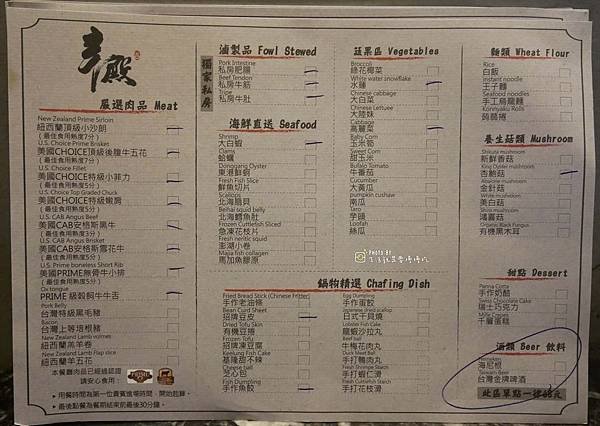 嚴選肉品 Meat
New Zealand Prime Sirloin
紐西蘭頂級小沙朗
(最佳食用熟度7分)
U.S. Choice Prime Brisket
美國CHOICE頂級後腹牛五花
(最佳食用熟度7分)
U.S. Choice Fillet
美國CHOICE特級小菲力
(最佳食用熟度5分)
U.S. Choice Top Graded Chuck
美國CHOICE特級嫩肩
(最佳食用熟度7分)
U.S. CAB Angus Beef
美國CAB安格斯黑牛
(最佳食用熟度3分)
U.S. CAB Angus Brisket
美國CAB安格斯雪花牛
(最佳食用熟度5分)
U.S. Prime boneless Short Rib
美國PRIME無骨牛小排
(最佳食用熟度5分)
Ox tongue
PRIME 級穀飼牛牛舌
Pork Belly
台灣特級黑毛豬
Bacon
台灣上等培根豬
New Zealand Lamb volmers
紐西蘭羔羊卷
New Zealand Lamb Flap slice
紐西蘭羊五花
本餐廳肉品已經過認證
請安心食用:
用餐時間為第一位貴賓進場時間,開始起算。
最後點餐為餐期結束前最後30分鐘。
獨家私房
滷製品 Fowl Stewed
Pork Intestine
私房肥腸
Beef Tendon
私房牛筋
Tripe
私房牛肚
海鮮直送 Seafood
Shrimp
大白蝦
Clams
蛤蠣
Donggang Oyster
東港鮮蚵
Fresh Fish Slice
鮮魚切片
Scallops
北海扇貝
Beihai squid belly
北海鱈魚肚
Frozen Cuttlefish Sliced
急凍花枝片
Fresh neritic squid
澎湖小卷
Majia fish collagen
馬加魚膠原
蔬果區 Vegetables
Broccoli
綠花椰菜
White water snowflake
水蓮
Chinese cabbage
大白菜
Chinese Lettuee
大陸妹
Cabbage
高麗菜
Baby Corn
玉米筍
Sweet Corn
甜玉米
Bufalo Tomato
牛番茄
Cucumber
大黃瓜
pumpkin cushaw
南瓜
Taro
芋頭
Loofah
絲瓜
鍋物精選 Chafing Dish
Fried Bread Stick (Chinese Fritter)
手作老油條
Bean Curd Sheet
招牌豆皮
Dried Tofu Skin
有機豆捲
Frozen Tofu
招牌凍豆腐
Keelung Fish Cake
基隆甜不辣
Cheese ball
芝心包
Fish Dumpling
手作魚餃
Egg Dumpling
手作蛋餃
Japanese dried scallop
日式干貝燒
Lobster Fish Cake
龍蝦沙拉丸
Beef Ball
牛梅花肉丸
Duck Meat Ball
手打鴨肉丸
Fresh Shrimpe Starch
手打蝦仁滑
Fresh Cuttlefish Starch
手打花枝滑
麵類 Wheat Flour
Rice
白飯
instant noodle
王子麵
Seafood noodles
手工烏龍麵
Konnyaku Rolls
蒟蒻捲
養生菇類 Mushroom
Shiitake mushroom
新鮮香菇
King Oyster mushroom
杏鮑菇
金針菇
White mushroom
美白菇
Shoji mushroom
鴻喜菇
Brown mushroom
有機黑木耳
甜點 Dessert
Panna Cotta
手作奶酪
Swiss Chocolate Cake
瑞士巧克力
Mille Crepes
千層蛋糕
酒類 Beer 飲料
Heineken
海尼根
Taiwan Beer
台灣金牌啤酒
PHOTO BY